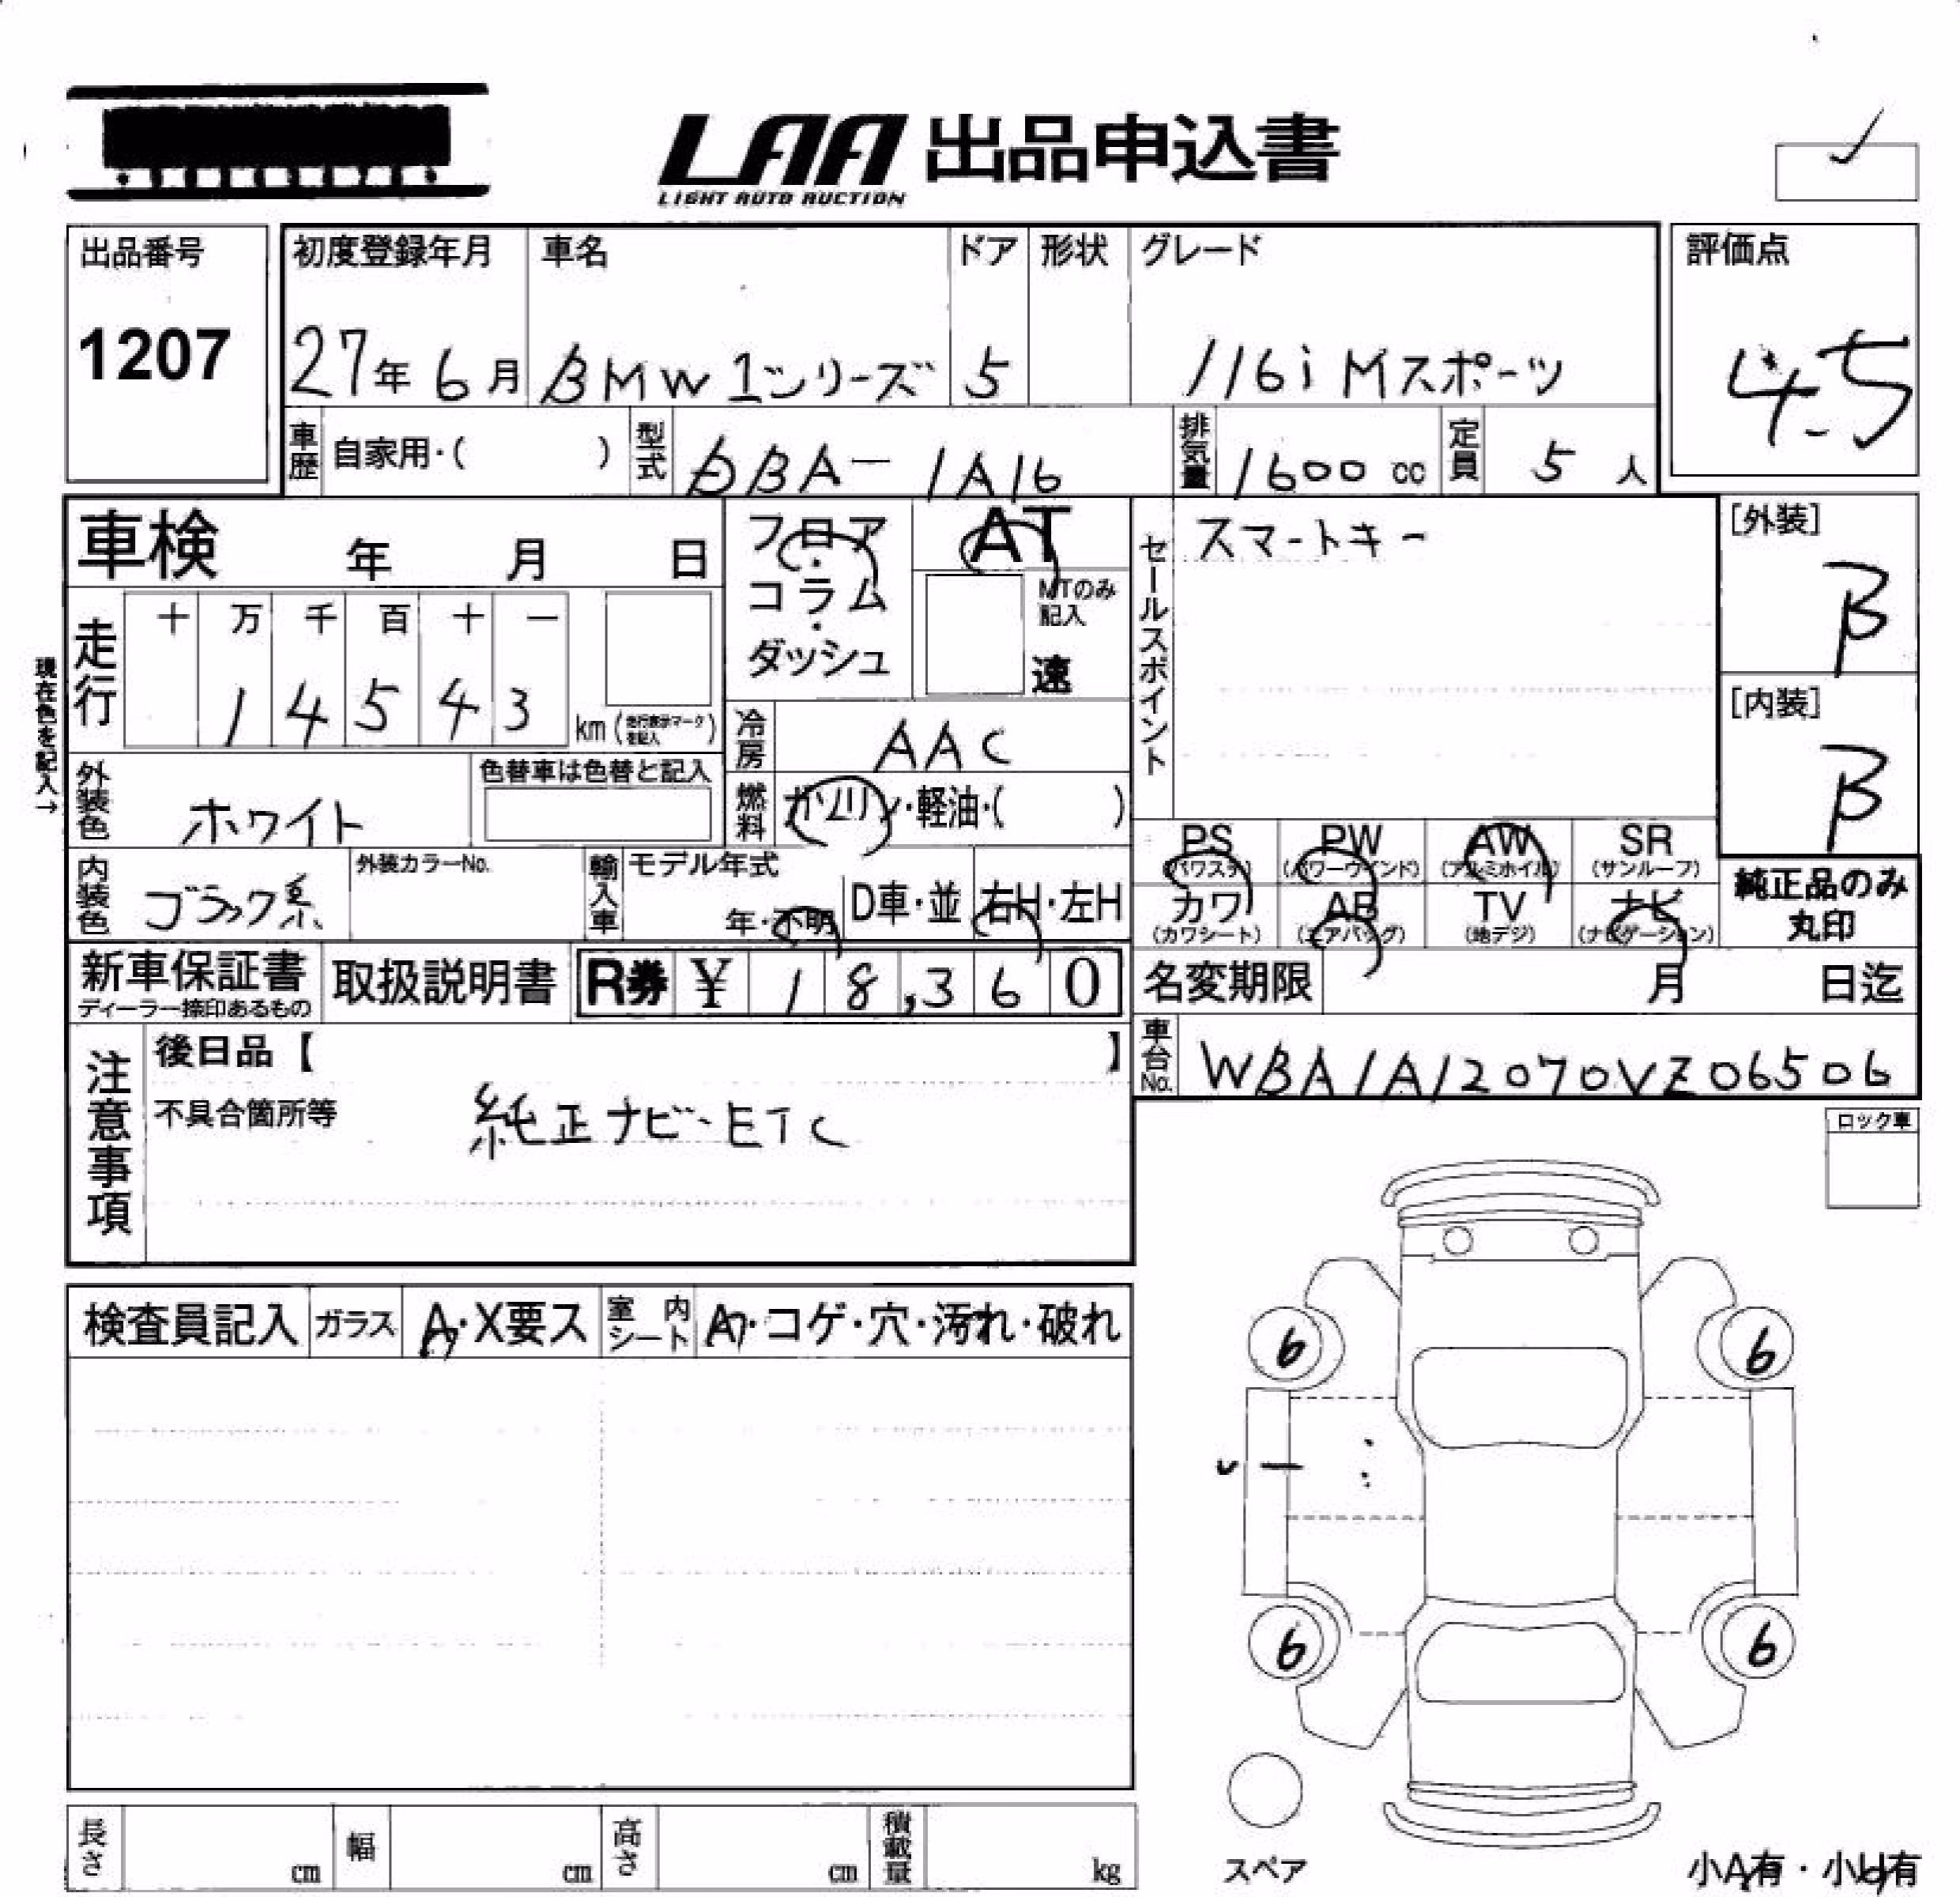 LAA 出品申込書
LIGHT AUTO AUCTION
出品番号
1207
初度登録年月 車名 ドア 形状 グレード
27年 6月 BMW 1シリーズ 5 116i Mスポーツ
評価点
4.5
車歴 自家用・( ) 型式 DBA-1A16 排気量 1600 cc 定員 5 人
車検 年 月 日
フロア・コラム・ダッシュ
AT
MTのみ記入
速
セールスポイント
スマートキー
[外装]
B
[内装]
B
現在色を記入→
走行
十 万 千 百 十 一
1 4 5 4 3
km (走行表示マークを記入)
冷房 AAC
外装色 ホワイト
色替車は色替と記入
燃料 ガソリン・軽油・( )
内装色 ブラック系
外装カラーNo.
輸入車 モデル年式
年・不明 D車・並 右H・左H
PS (パワステ) PW (パワーウインド) AW (アルミホイル) SR (サンルーフ)
カワ (カワシート) AB (エアバッグ) TV (地デジ) ナビ (ナビゲーション)
純正品のみ
丸印
新車保証書
ディーラー捺印あるもの
取扱説明書
R券 ¥ 18,360
名変期限 月 日迄
車台No. WBA1A12070VZ06506
注意事項
後日品【 】
不具合箇所等 純正ナビ・ETC
ロック車
検査員記入 ガラス A・X要ス 室内シート A・コゲ・穴・汚れ・破れ
6 6
6 6
スペア
長さ cm 幅 cm 高さ cm 積載量 kg
小A有・小U有